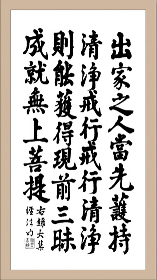 出家之人當先護持
清淨戒行戒行清淨
則能獲得現前三昧
成就無上菩提
右錄大集
經法句